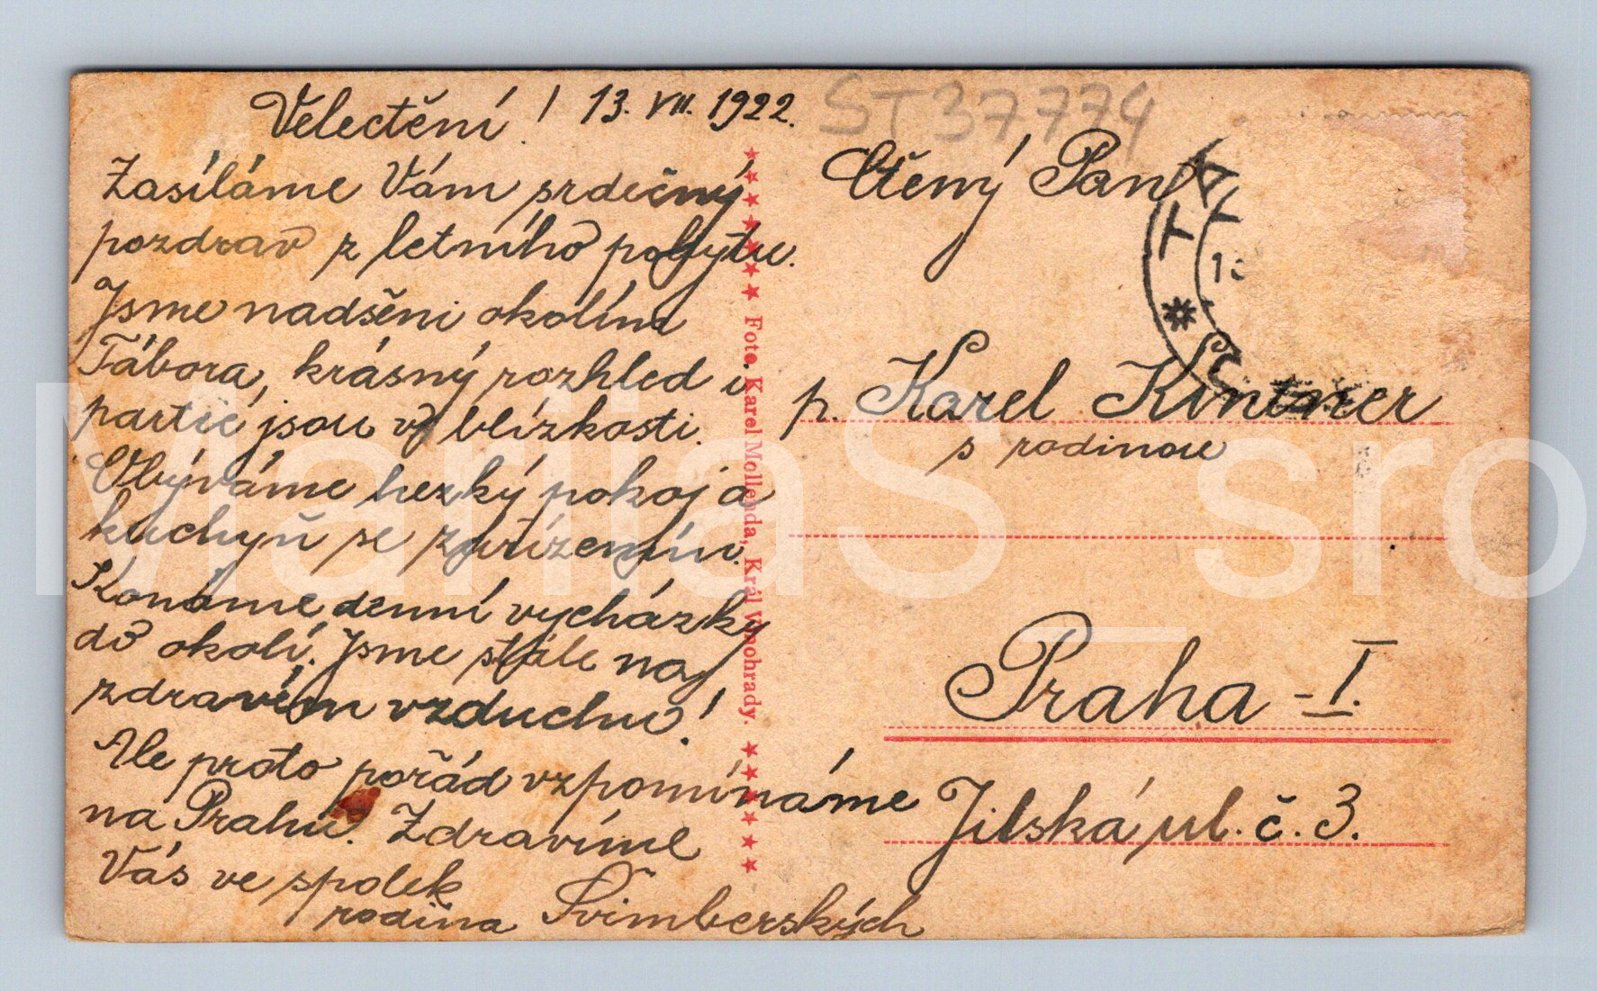 Velectění! 13. VII. 1922.
Zasíláme Vám srdečný
pozdrav z letního pobytu.
Jsme nadšeni okolím
Tábora, krásný rozhled i
partie jsou v blízkosti.
Obýváme hezký pokoj a
kuchyň se zařízením.
Konáme denní vycházky
do okolí. Jsme stále na
zdravém vzduchu!
Ale proto pořád vzpomínáme
na Prahu. Zdravíme
Vás ve spolek
rodina Švimberských
Foto. Karel Mollenda, Král Vinohrady.
ST37774
Ctěný Pan
p. Karel Kintner
s rodinou
Praha - I.
Jilská ul. č. 3.
MariiaS_sro